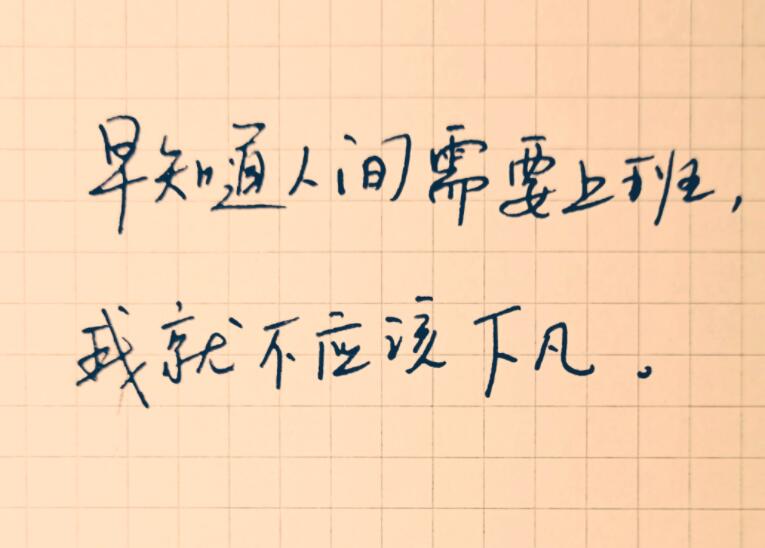 早知道人间需要上班，
我就不应该下凡。